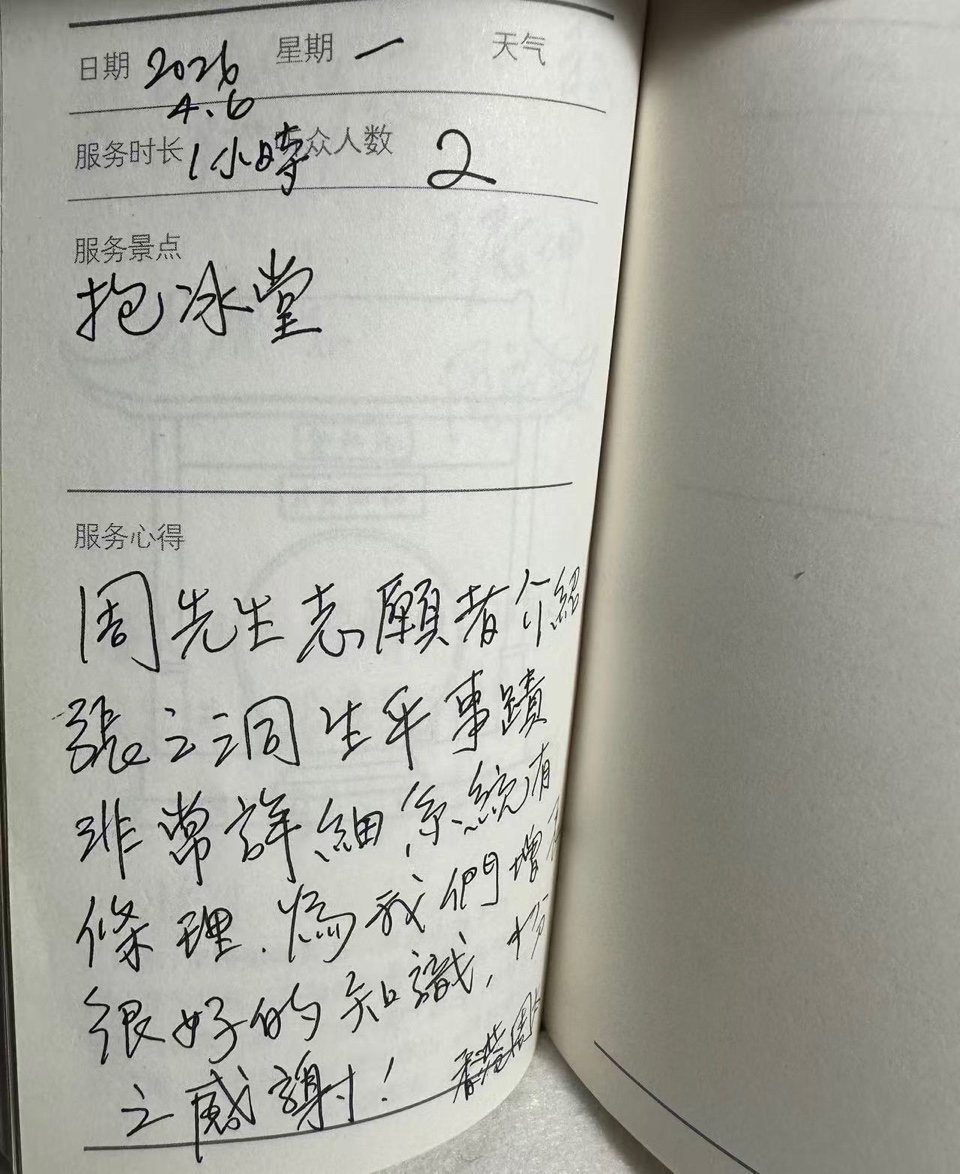 日期 2026 星期 一 天气
4.6
服务时长 1小時 众人数 2
服务景点
抱冰堂
服务心得
周先生志願者介紹
張之洞生平事蹟
非常詳細系統有
條理.為我們增
很好的知識,十分
之感謝!